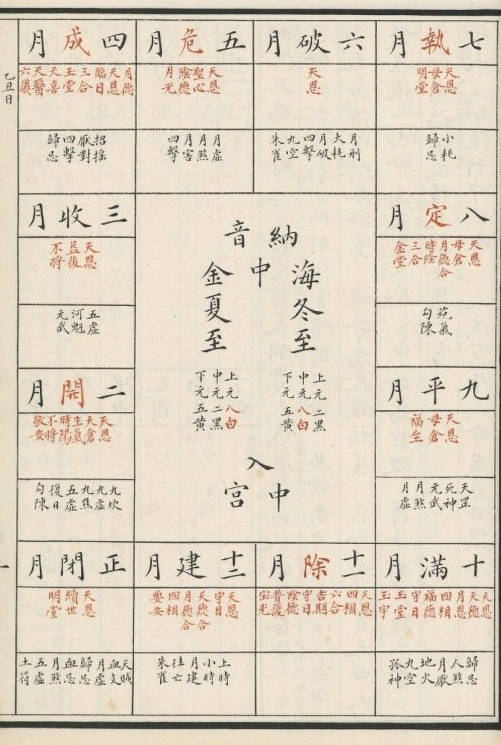 乙丑日
七執月
天恩
母倉
明堂
小耗
歸忌
六破月
天恩
月刑
大耗
月破
四擊
九空
朱雀
五危月
天恩
聖心
陰德
月虛
月煞
月害
四擊
四成月
天恩
臨日
三合
玉堂
天喜
天醫
六儀
招搖
厭對
四擊
歸忌
八定月
天恩
母倉
月德合
時陰
三合
金堂
死氣
勾陳
三收月
天恩
益後
不將
五虛
河魁
元武
九平月
天恩
母倉
福生
天罡
死神
元武
月煞
月虛
二開月
天恩
天倉
生氣
時陽
不將
敬安
九坎
九虛
九焦
五虛
復日
勾陳
納音
海中金
冬至
上元二黑
中元八白
下元五黃
夏至
上元八白
中元二黑
下元五黃
入中宮
十滿月
天恩
天德
月恩
四相
福德
守日
玉堂
玉宇
歸忌
人煞
月厭
地火
九空
孤神
十一除月
天恩
四相
六合
吉期
守日
陰德
普護
寶光
十二建月
天恩
守日
天德合
月德合
四相
要安
上時
小時
月建
往亡
朱雀
正閉月
天恩
續世
明堂
天賊
血支
月虛
歸忌
血忌
月煞
五虛
土符